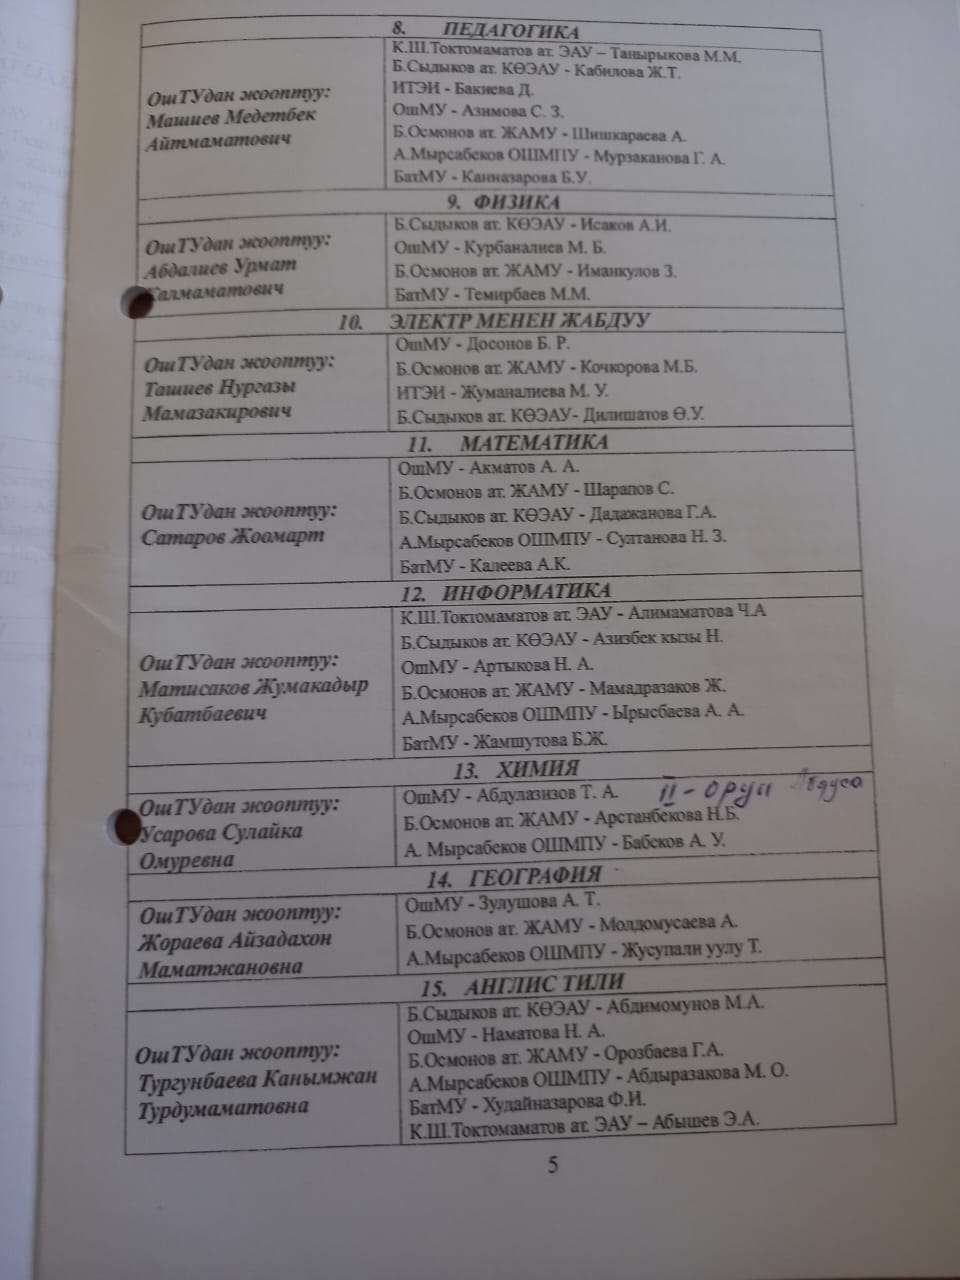 8. ПЕДАГОГИКА
ОшТУдан жооптуу:
Машиев Медетбек
Айтмаматович
К.Ш.Токтомаматов ат. ЭАУ – Танырыкова М.М.
Б.Сыдыков ат. КӨЭАУ - Кабилова Ж.Т.
ИТЭИ - Бакиева Д.
ОшМУ - Азимова С. З.
Б.Осмонов ат. ЖАМУ - Шишкараева А.
А.Мырсабеков ОШМПУ - Мурзаканова Г. А.
БатМУ - Канназарова Б.У.
9. ФИЗИКА
ОшТУдан жооптуу:
Абдалиев Урмат
Калмаматович
Б.Сыдыков ат. КӨЭАУ - Исаков А.И.
ОшМУ - Курбаналиев М. Б.
Б.Осмонов ат. ЖАМУ - Иманкулов З.
БатМУ - Темирбаев М.М.
10. ЭЛЕКТР МЕНЕН ЖАБДУУ
ОшТУдан жооптуу:
Ташиев Нургазы
Мамазакирович
ОшМУ - Досонов Б. Р.
Б.Осмонов ат. ЖАМУ - Кочкорова М.Б.
ИТЭИ - Жуманалиева М. У.
Б.Сыдыков ат. КӨЭАУ- Дилишатов Ө.У.
11. МАТЕМАТИКА
ОшТУдан жооптуу:
Сатаров Жоомарт
ОшМУ - Акматов А. А.
Б.Осмонов ат. ЖАМУ - Шарапов С.
Б.Сыдыков ат. КӨЭАУ - Дадажанова Г.А.
А.Мырсабеков ОШМПУ - Султанова Н. З.
БатМУ - Калеева А.К.
12. ИНФОРМАТИКА
ОшТУдан жооптуу:
Матисаков Жумакадыр
Кубатбаевич
К.Ш.Токтомаматов ат. ЭАУ - Алимаматова Ч.А
Б.Сыдыков ат. КӨЭАУ - Азизбек кызы Н.
ОшМУ - Артыкова Н. А.
Б.Осмонов ат. ЖАМУ - Мамадразаков Ж.
А.Мырсабеков ОШМПУ - Ырысбаева А. А.
БатМУ - Жамшутова Б.Ж.
13. ХИМИЯ
ОшТУдан жооптуу:
Усарова Сулайка
Омуревна
ОшМУ - Абдулазизов Т. А. II - орун
Б.Осмонов ат. ЖАМУ - Арстанбекова Н.Б.
А. Мырсабеков ОШМПУ - Бабеков А. У.
14. ГЕОГРАФИЯ
ОшТУдан жооптуу:
Жораева Айзадахон
Маматжановна
ОшМУ - Зулушова А. Т.
Б.Осмонов ат. ЖАМУ - Молдомусаева А.
А.Мырсабеков ОШМПУ - Жусупали уулу Т.
15. АНГЛИС ТИЛИ
ОшТУдан жооптуу:
Тургунбаева Канымжан
Турдумаматовна
Б.Сыдыков ат. КӨЭАУ - Абдимомунов М.А.
ОшМУ - Наматова Н. А.
Б.Осмонов ат. ЖАМУ - Орозбаева Г.А.
А.Мырсабеков ОШМПУ - Абдыразакова М. О.
БатМУ - Худайназарова Ф.И.
К.Ш.Токтомаматов ат. ЭАУ – Абышев Э.А.
5